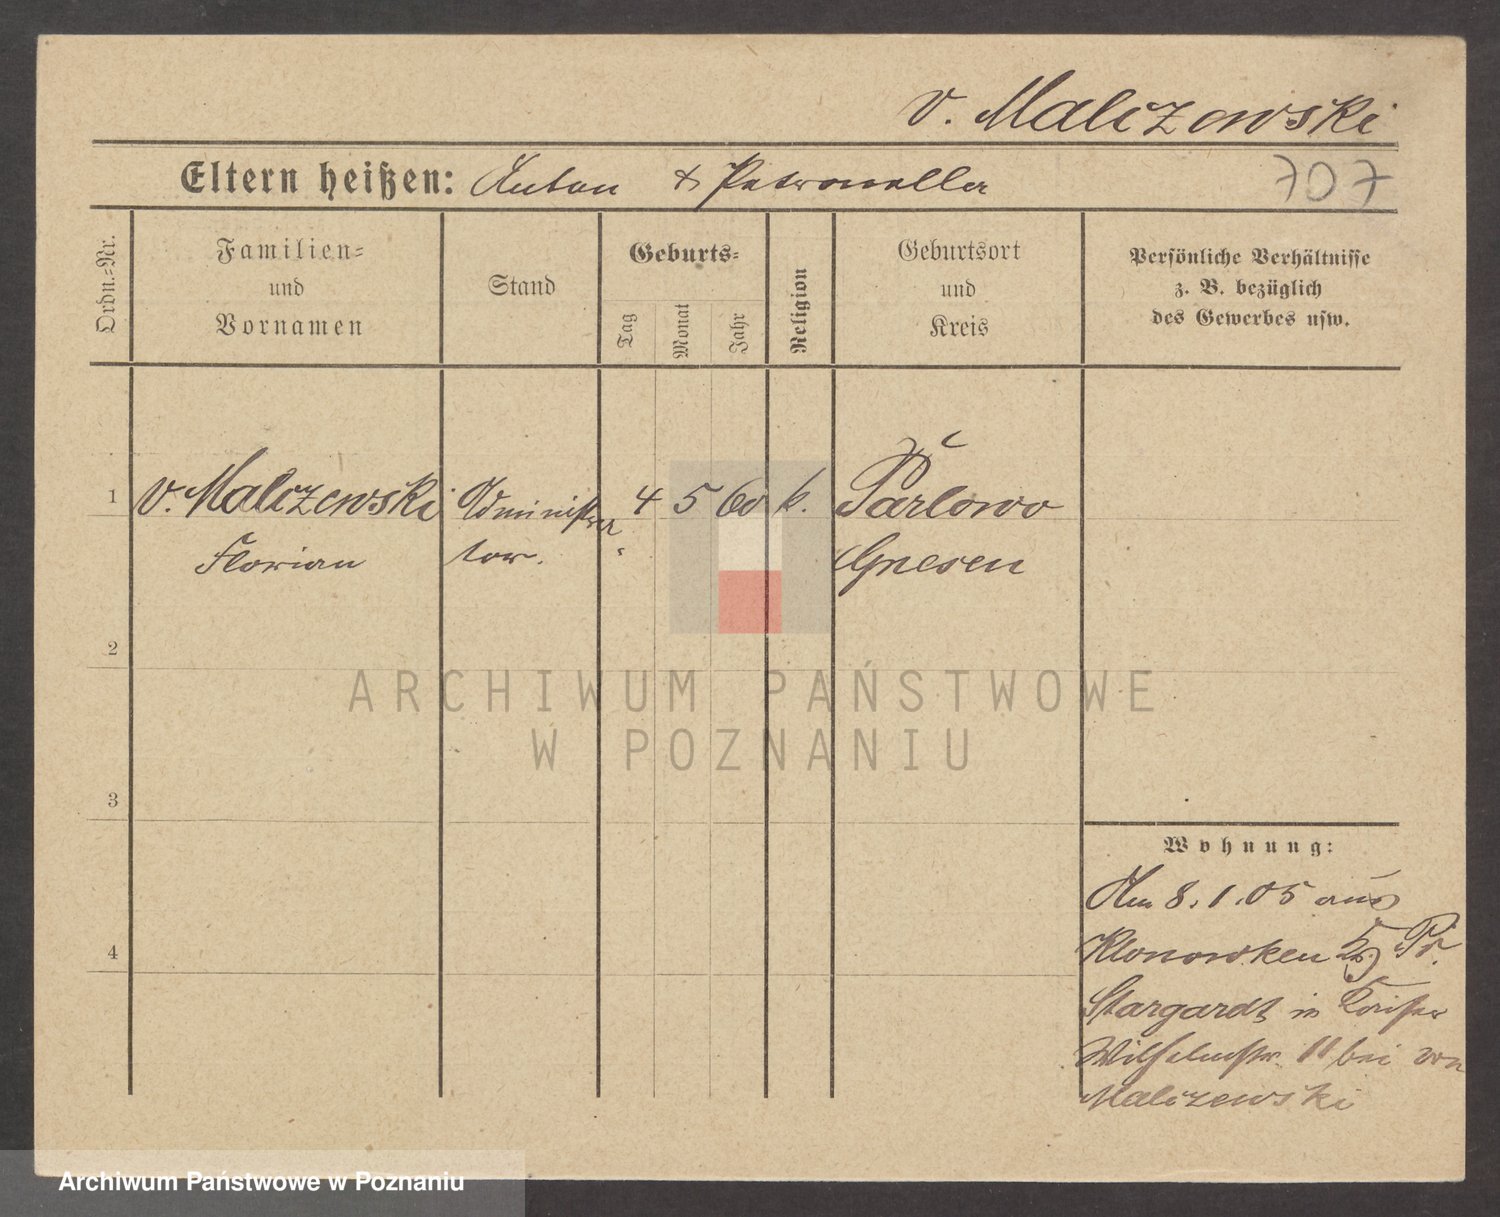 v. Malczewski
Eltern heißen: Anton & Petronella
707
Ordn.-Nr.
Familien-
und
Vornamen
Stand
Geburts-
Tag
Monat
Jahr
Religion
Geburtsort
und
Kreis
Persönliche Verhältnisse
z. B. bezüglich
des Gewerbes usw.
1 v. Malczewski Administra 4 5 60 k. Parlowo
Florian tor. Gnesen
2
3
4
Wohnung:
Am 8.1.05 aus
Klonowken Pr.
Stargardt in Kaiser
Wilhelmstr. 11 bei von
Malczewski
ARCHIWUM PAŃSTWOWE
W POZNANIU
Archiwum Państwowe w Poznaniu